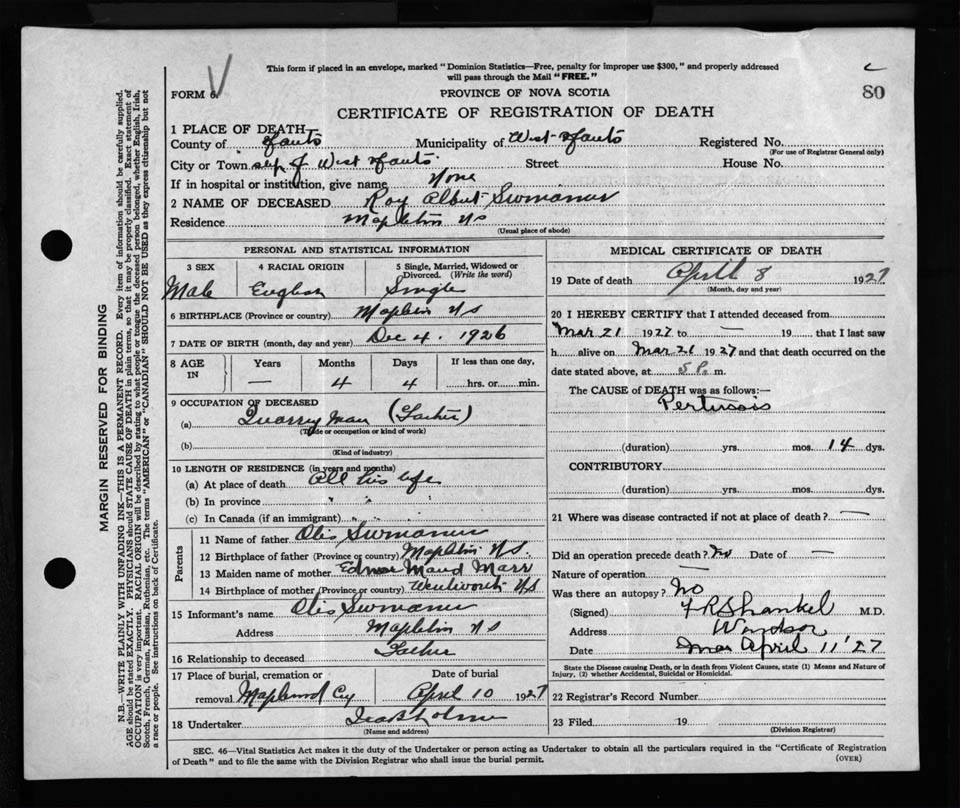 This form if placed in an envelope, marked "Dominion Statistics—Free, penalty for improper use $300," and properly addressed
will pass through the Mail "FREE."
FORM 6.
PROVINCE OF NOVA SCOTIA
80
CERTIFICATE OF REGISTRATION OF DEATH
1 PLACE OF DEATH
County of Hants Municipality of West Hants Registered No.
(For use of Registrar General only)
City or Town of West Hants Street House No.
If in hospital or institution, give name None
2 NAME OF DECEASED Roy Albert
Residence N S
(Usual place of abode)
PERSONAL AND STATISTICAL INFORMATION
3 SEX 4 RACIAL ORIGIN 5 Single, Married, Widowed or Divorced. (Write the word)
Male English Single
6 BIRTHPLACE (Province or country) N S
7 DATE OF BIRTH (month, day and year) Dec 4. 1926
8 AGE IN Years Months Days If less than one day,
— 4 4 hrs. or min.
9 OCCUPATION OF DECEASED
(a) Quarry man (Father)
(Trade or occupation or kind of work)
(b)
(Kind of industry)
10 LENGTH OF RESIDENCE (in years and months)
(a) At place of death All his life
(b) In province " " "
(c) In Canada (if an immigrant)
Parents
11 Name of father Otis
12 Birthplace of father (Province or country) N S.
13 Maiden name of mother Maud Marr
14 Birthplace of mother (Province or country) Wentworth N S
15 Informant's name Otis
Address N S
16 Relationship to deceased Father
17 Place of burial, cremation or removal Date of burial
Cy April 10 1927
18 Undertaker
(Name and address)
MEDICAL CERTIFICATE OF DEATH
19 Date of death April 8 1927
(Month, day and year)
20 I HEREBY CERTIFY that I attended deceased from
Mar 21 1927 to — 19 that I last saw
h alive on Mar 21 1927 and that death occurred on
date stated above, at 5 P. m.
The CAUSE of DEATH was as follows:—
Pertussis
(duration) yrs. mos. 14 dys.
CONTRIBUTORY
(duration) yrs. mos. dys.
21 Where was disease contracted if not at place of death? —
Did an operation precede death? No Date of —
Nature of operation —
Was there an autopsy? No
(Signed) F R Shankel M.D.
Address Windsor
Date April 11 '27
State the Disease causing Death, or in death from Violent Causes, state (1) Means and Nature of
Injury, (2) whether Accidental, Suicidal or Homicidal.
22 Registrar's Record Number
23 Filed 19
(Division Registrar)
SEC. 46—Vital Statistics Act makes it the duty of the Undertaker or person acting as Undertaker to obtain all the particulars required in the "Certificate of Registration
of Death" and to file the same with the Division Registrar who shall issue the burial permit.
(OVER)
MARGIN RESERVED FOR BINDING
N.B.—WRITE PLAINLY WITH UNFADING INK—THIS IS A PERMANENT RECORD. Every item of information should be carefully supplied.
AGE should be stated EXACTLY. PHYSICIANS should STATE CAUSE OF DEATH in plain terms, so that it may be properly classified. Exact statement of
OCCUPATION is very important. RACIAL ORIGIN will be described by stating to what people or tongue the deceased person belonged, whether English, Irish,
Scotch, French, German, Russian, Ruthenian, etc. The terms "AMERICAN" or "CANADIAN" SHOULD NOT BE USED as they express citizenship but not
a race or people. See instructions on back of Certificate.